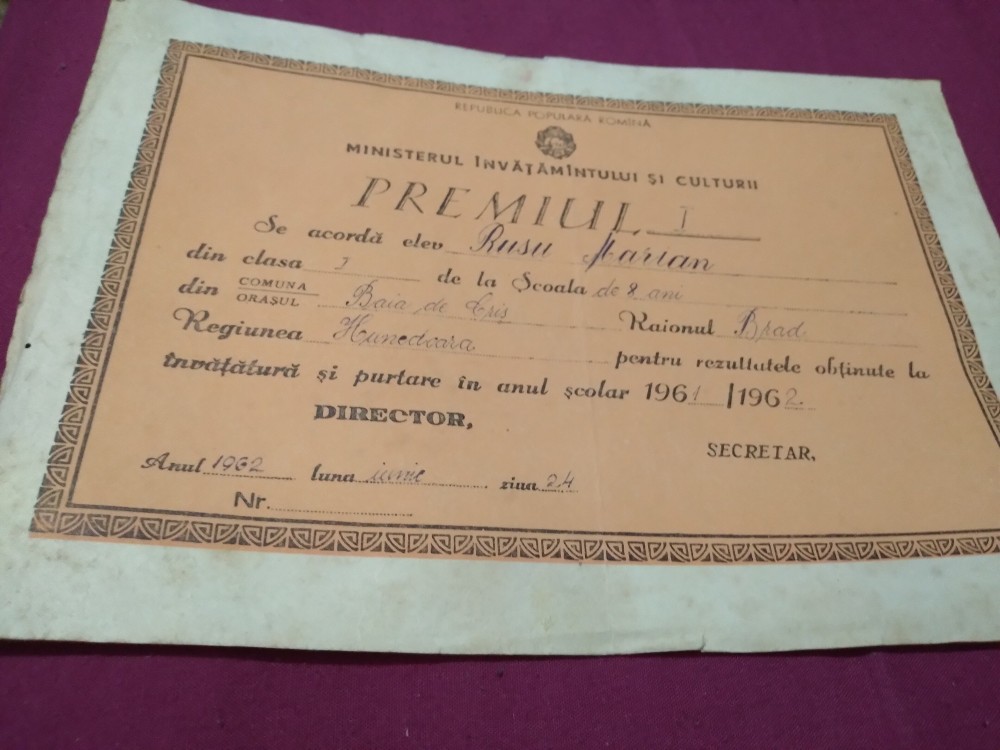 REPUBLICA POPULARĂ ROMÎNĂ
MINISTERUL ÎNVĂŢĂMÎNTULUI ŞI CULTURII
PREMIUL I
Se acordă elev Rusu Marian
din clasa I de la Şcoala de 8 ani
din COMUNA ORAŞUL Baia de Criş Raionul Brad
Regiunea Hunedoara pentru rezultatele obţinute la
învăţătură şi purtare în anul şcolar 1961/1962
DIRECTOR,
SECRETAR,
Anul 1962 luna iunie ziua 24
Nr.